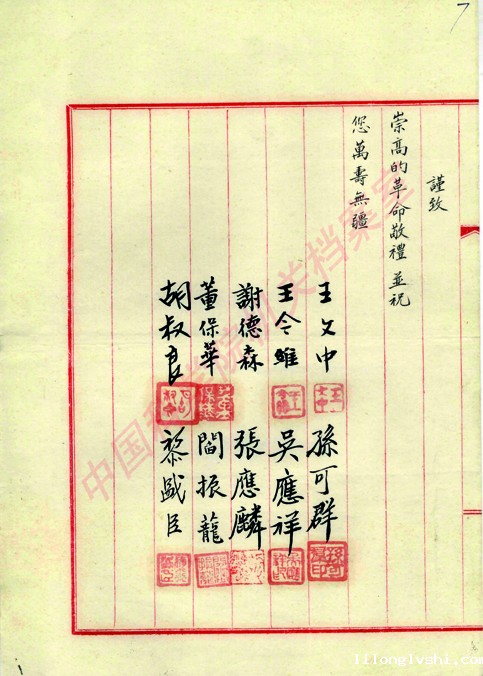 7
謹致
崇高的革命敬禮 並祝
您萬壽無疆
王文中 孫可群
王令維 吳應祥
謝德森 張應麟
董保華 閻振龍
胡叔良 黎盛臣
中国科学院机关档案室
lilonglvshi.com